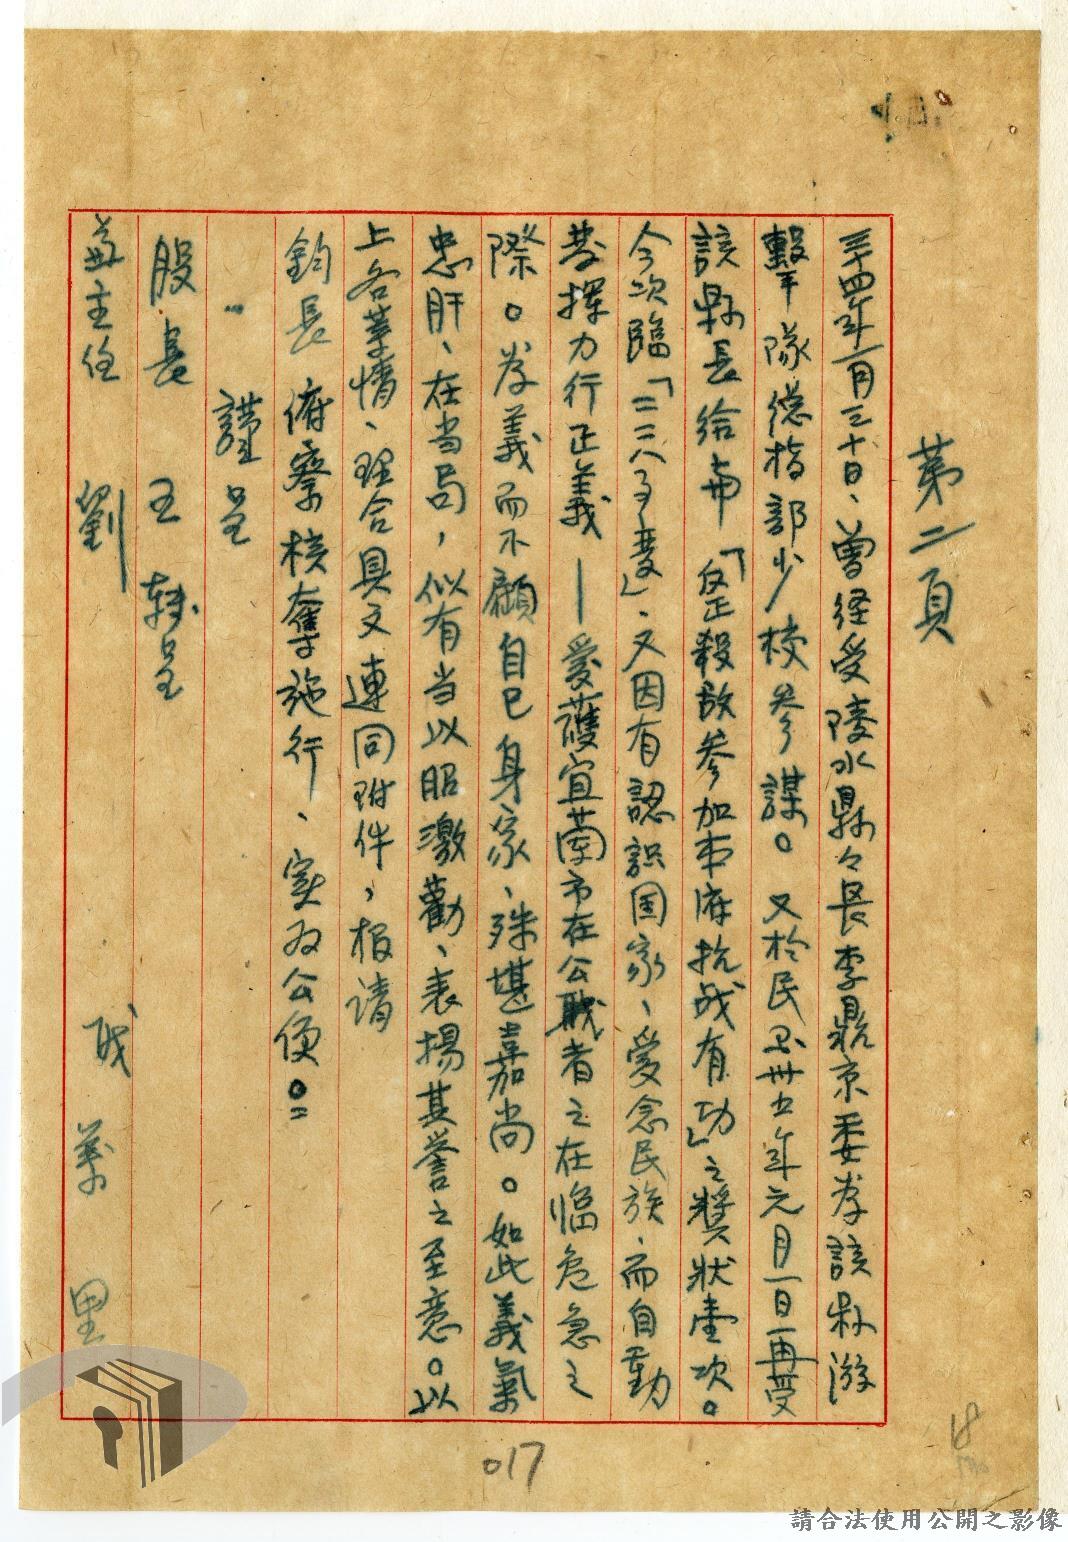 第二頁
卅四年一月三十日、曾経受陵水縣々長李鼎京委于該縣游
擊隊總指部少校參謀。又於民國卅五年元月一日再受
該縣長給與「反正殺敵參加本府抗战有功」之獎狀壹次。
今次臨「二二八事變」、又因有認識国家、愛念民族、而自動
發揮力行正義—愛護宜蘭市在公職者之在臨危急之
際。為義而不顧自已身家、殊堪嘉尚。如此義氣
忠肝、在当局，似有当以昭激勸、表揚其譽之至意。以
上各等情、理合具文連同附件，报请
鈞長 俯察核奪施行、寔为公便。
謹呈
股長 王 轉呈
主任 劉 戒 万 里
017
18
請合法使用公開之影像